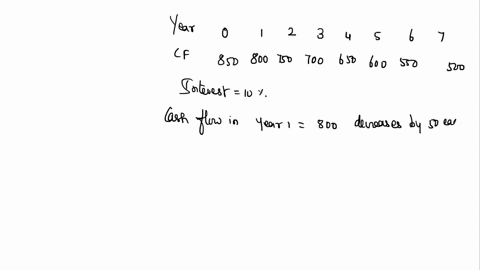 Year 0 1 2 3 4 5 6 7
CF 850 800 750 700 650 600 550 500
Interest = 10 %.
Cash flow in year 1 = 800 decreases by 50 ea